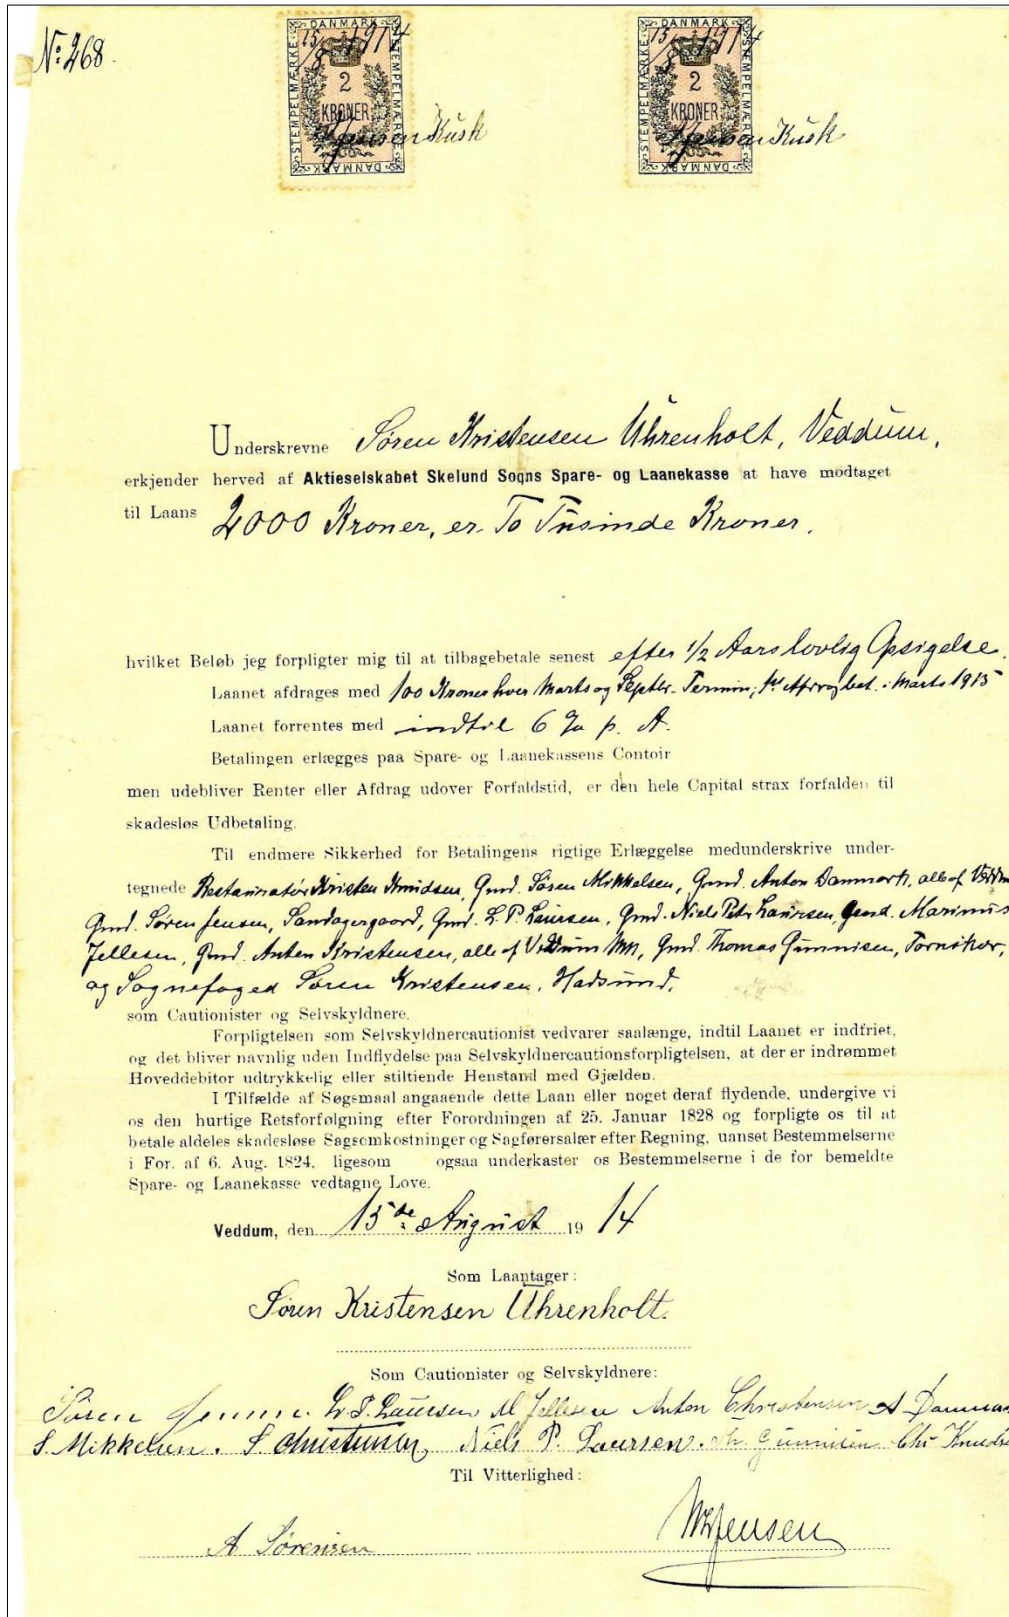 No. 268.
DANMARK
STEMPELMÆRKE
STEMPELMÆRKE
2
KRONER
DANMARK
15/8 1914
Kusk
DANMARK
STEMPELMÆRKE
STEMPELMÆRKE
2
KRONER
DANMARK
15/8 1914
Kusk
Underskrevne Søren Kristensen Uhrenholt, Veddum,
erkjender herved af Aktieselskabet Skelund Sogns Spare- og Laanekasse at have modtaget
til Laans 2000 Kroner, er To Tusinde Kroner.
hvilket Beløb jeg forpligter mig til at tilbagebetale senest efter 1/2 Aars lovlig Opsigelse.
Laanet afdrages med 100 Kroner hver Marts og Septbr. Termin; bet. i Marts 1915
Laanet forrentes med indtil 6 % p. A.
Betalingen erlægges paa Spare- og Laanekassens Contoir
men udebliver Renter eller Afdrag udover Forfaldstid, er den hele Capital strax forfalden til
skadesløs Udbetaling.
Til endmere Sikkerhed for Betalingens rigtige Erlæggelse medunderskrive under-
tegnede Restauratør Kristen Knudsen, Gmd. Søren Mikkelsen, Gmd. Anton Danmark, alle af Veddum
Gmd. Søren Jensen, Sandagergaard, Gmd. L. P. Laursen, Gmd. Niels Petr Laursen, Gmd. Marinus
Jellesen, Gmd. Anton Kristensen, alle af Veddum Gmd. Thomas Gunnisen, Tornskov,
og Sognefoged Søren Kristensen, Hadsund,
som Cautionister og Selvskyldnere.
Forpligtelsen som Selvskyldnercautionist vedvarer saalænge, indtil Laanet er indfriet,
og det bliver navnlig uden Indflydelse paa Selvskyldnercautionsforpligtelsen, at der er indrømmet
Hoveddebitor udtrykkelig eller stiltiende Henstand med Gjælden.
I Tilfælde af Søgsmaal angaaende dette Laan eller noget deraf flydende, undergive vi
os den hurtige Retsforfølgning efter Forordningen af 25. Januar 1828 og forpligte os til at
betale aldeles skadesløse Sagsomkostninger og Sagførersalær efter Regning, uanset Bestemmelserne
i For. af 6. Aug. 1824, ligesom ogsaa underkaster os Bestemmelserne i de for bemeldte
Spare- og Laanekasse vedtagne Love.
Veddum, den 15de August 1914
Som Laantager:
Søren Kristensen Uhrenholt.
Som Cautionister og Selvskyldnere:
Søren Jensen. L. P. Laursen M Jellesen Anton Christensen A Danmark
S. Mikkelsen. S Christensen, Niels P. Laursen. Th. Gunnisen Chr Knudsen
Til Vitterlighed:
A Sørensen Jensen